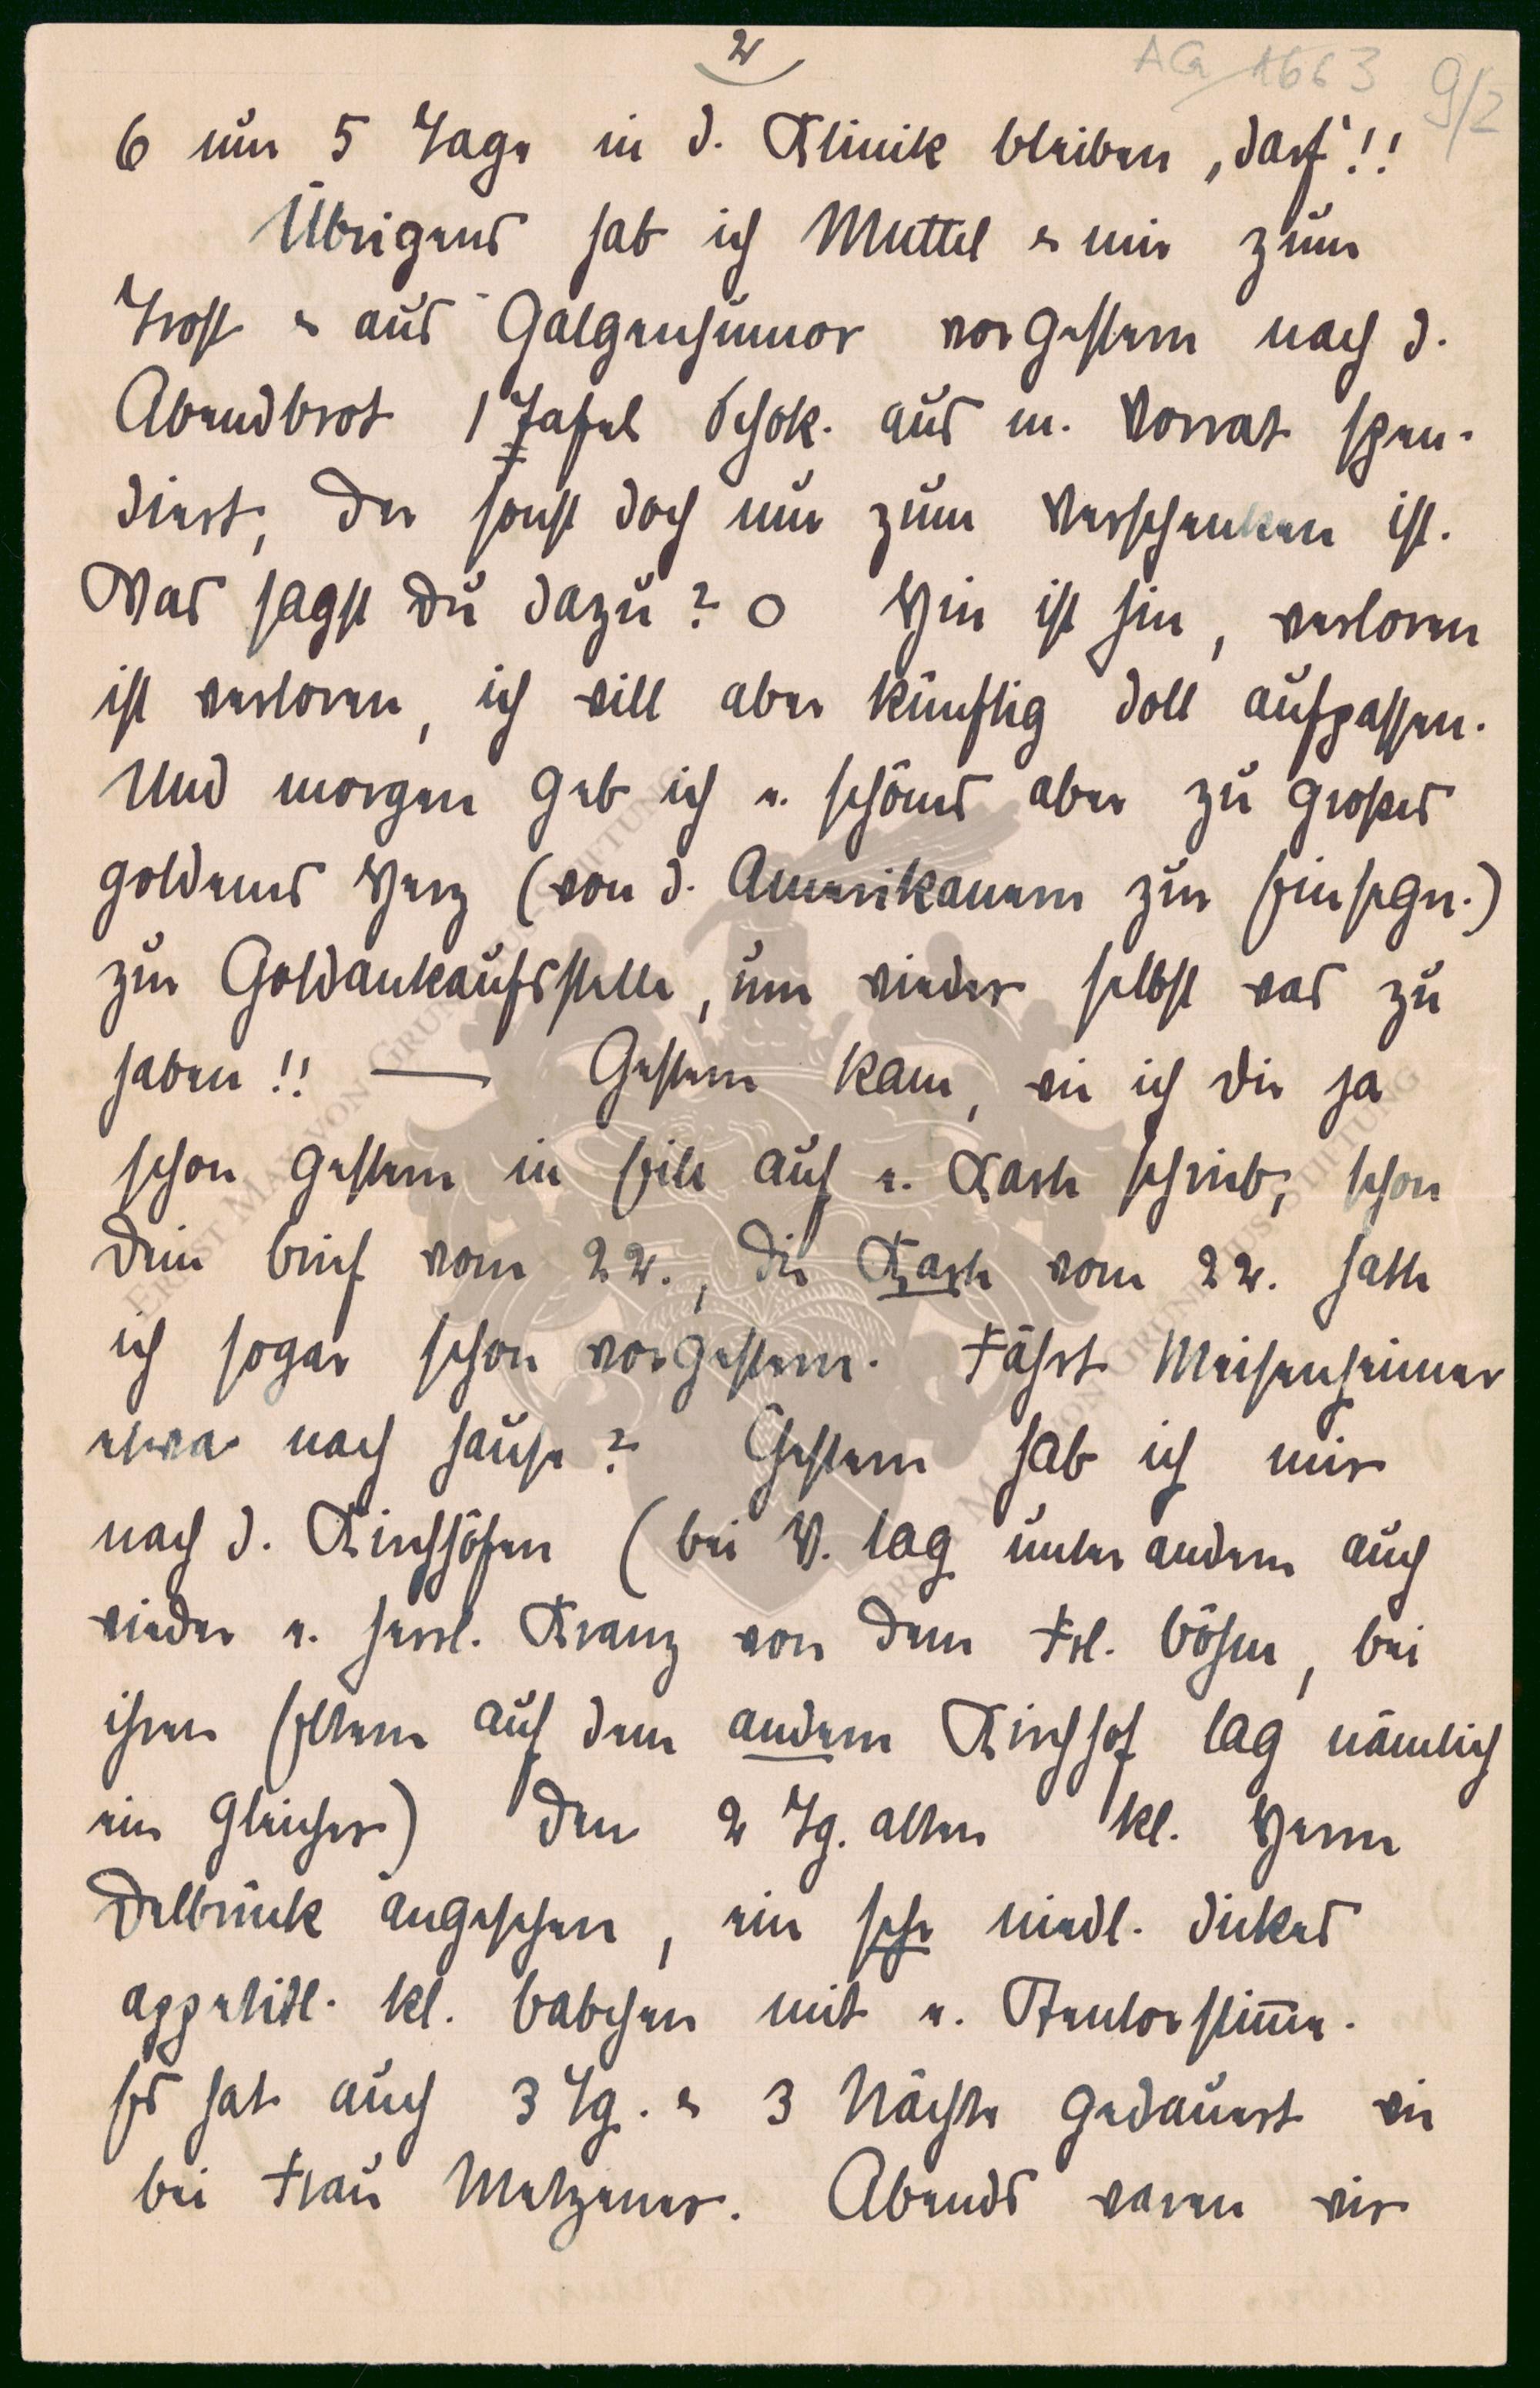 2
AG 1663 9/2
6 nur 5 Tage in d. Klinik bleiben „darf“!!
Übrigens hab ich Muttel u mir zum
Trost u aus Galgenhumor vorgestern nach d.
Abendbrot 1 Tafel Schok. aus m. Vorrat spen-
diert, der sonst doch nur zum Verschenken ist.
Was sagst Du dazu? O Hin ist hin, verloren
ist verloren, ich will aber künftig doll aufpassen.
Und morgen geb ich e. schönes aber zu großes
goldenes Herz (von d. Amerikanern zur Einsegn.)
zur Goldankaufsstelle, um wieder selbst was zu
haben!! — Gestern kam, wie ich Dir ja
schon gestern in Eile auf e. Karte schrieb, schon
Dein Brief vom 22., die Karte vom 22. hatte
ich sogar schon vorgestern. Fährt Meisenheimer
etwa nach Hause? Gestern hab ich mir
nach d. Kirchhöfen (bei V. lag unter andern auch
wieder e. herrl. Kranz von dem Frl. Böhm, bei
ihren Eltern auf dem andern Kirchhof lag nämlich
ein gleicher) den 2 Tg. alten kl. Herrn
Delbrück angesehen, ein sehr niedl. dickes
appetitl. kl. Babchen mit e. Stentorstimme.
Es hat auch 3 Tg. u 3 Nächte gedauert wie
bei Frau Metzener. Abends waren wir
ERNST MAX VON GRUNELIUS-STIFTUNG
ERNST MAX VON GRUNELIUS-STIFTUNG